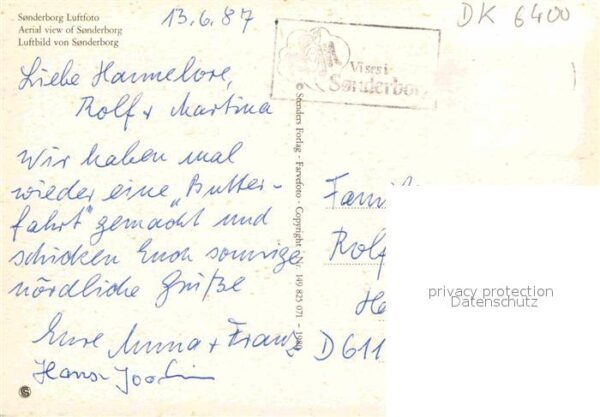 Sønderborg Luftfoto
Aerial view of Sønderborg
Luftbild von Sønderborg
13.6.87
DK 6400
Vi ses i
Sønderborg
Liebe Hannelore,
Rolf + Martina
Wir haben mal
wieder eine „Butter-
fahrt" gemacht und
schicken Euch sonnige
nördliche Grüße
Eure Anna + Franz
Hans-Joachim
© Stenders Forlag - Farvefoto - Copyright 149 823 071 -
Famil
Rolf
Ha
D 611
privacy protection
Datenschutz